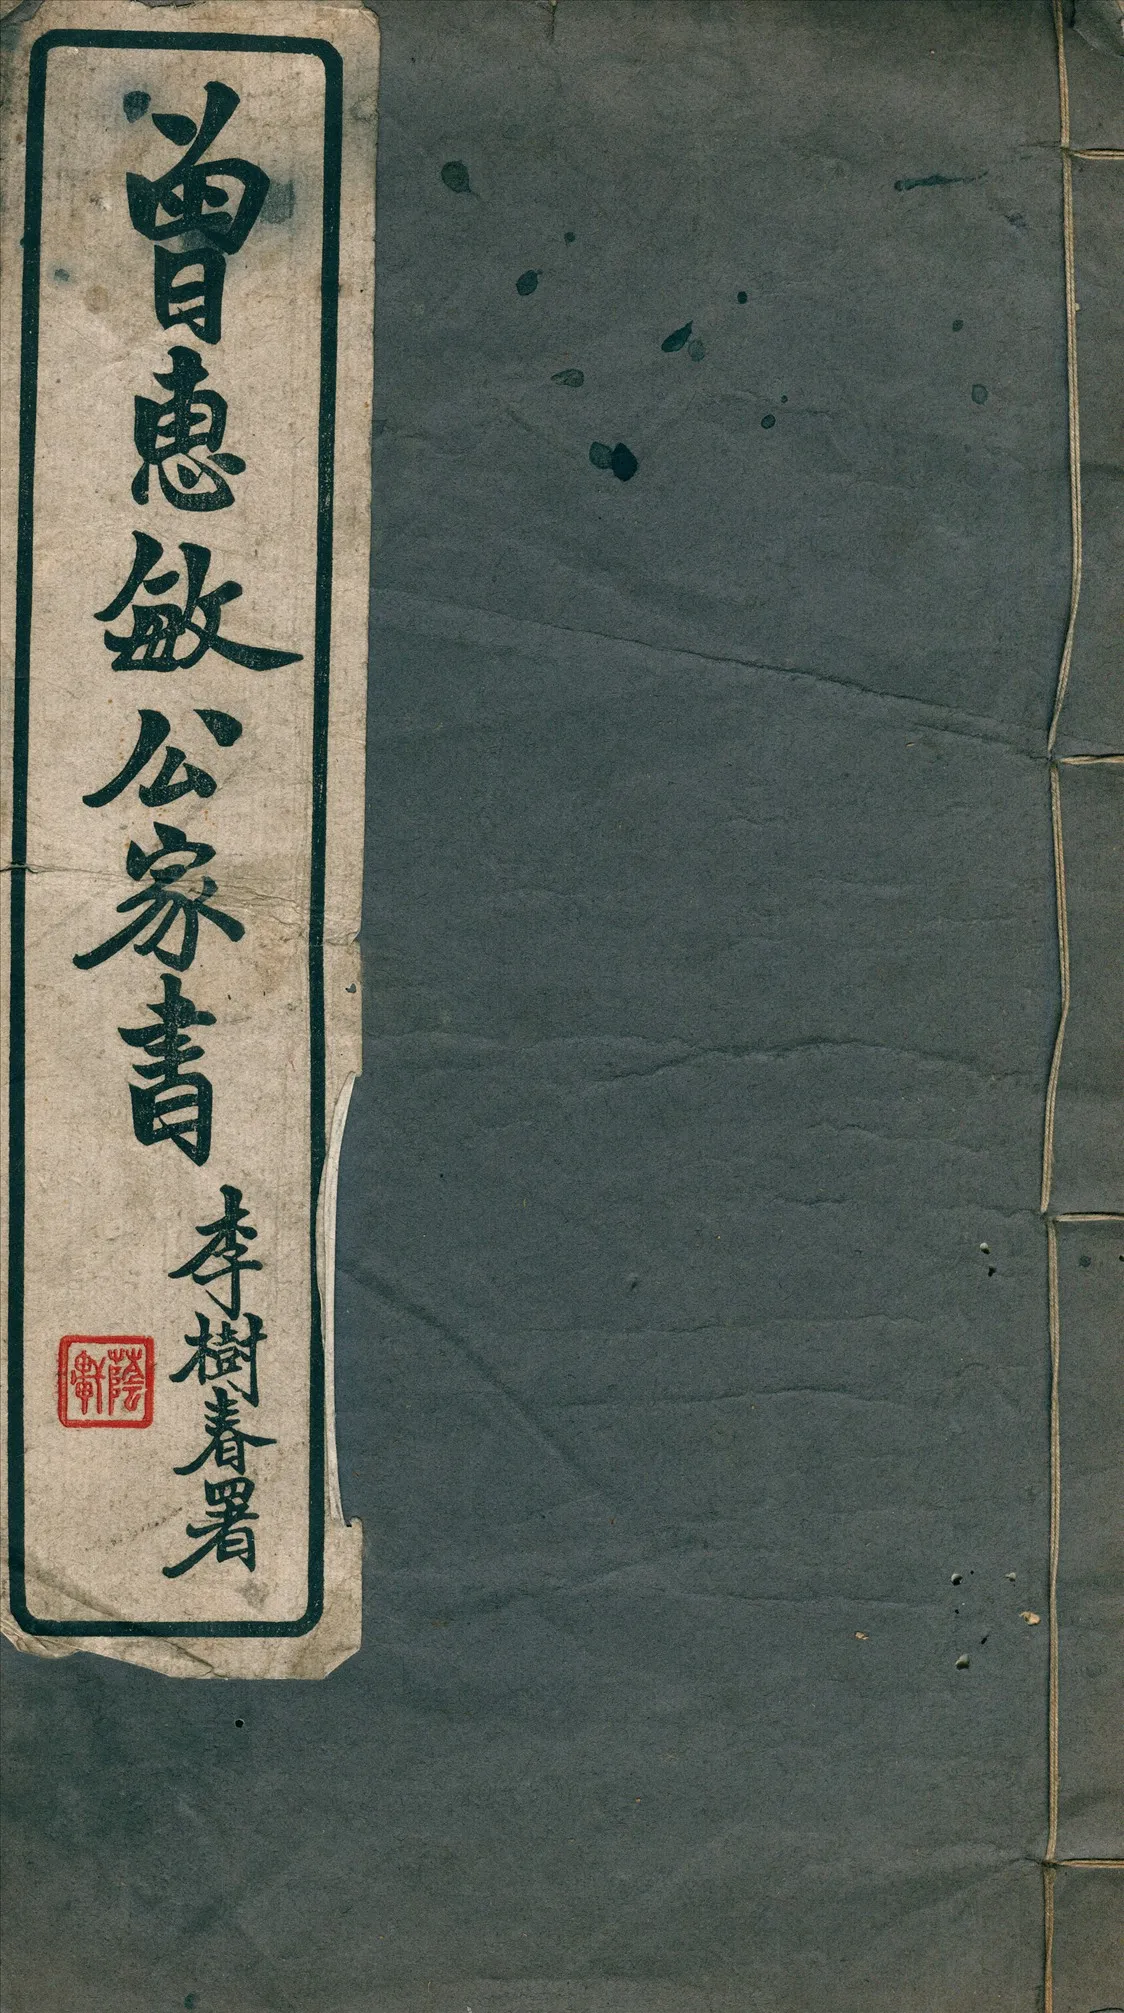 曾惠敏公家書
李樹春署